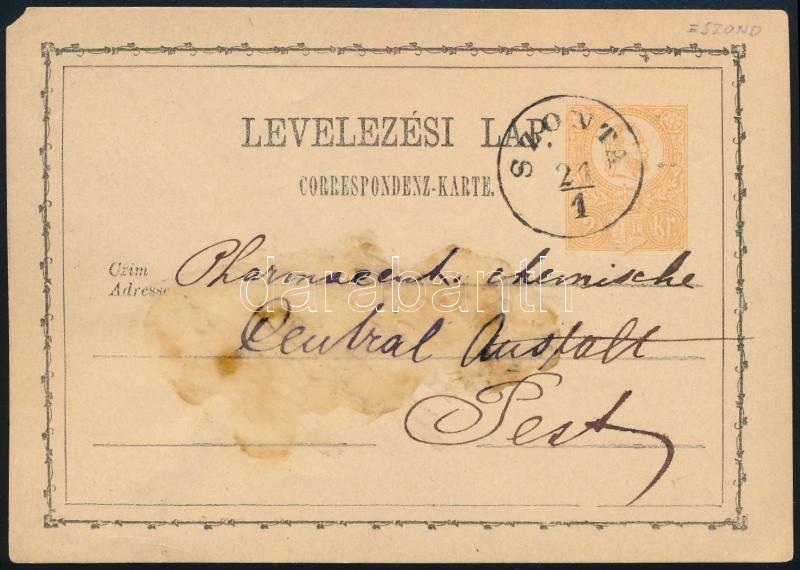 =SZOND
LEVELEZÉSI LAP.
CORRESPONDENZ-KARTE.
SZONTA
21
1
2 Kr.
Czím
Adresse
Pharmaceut. chemische
Central Anstalt
Pest
darabanth